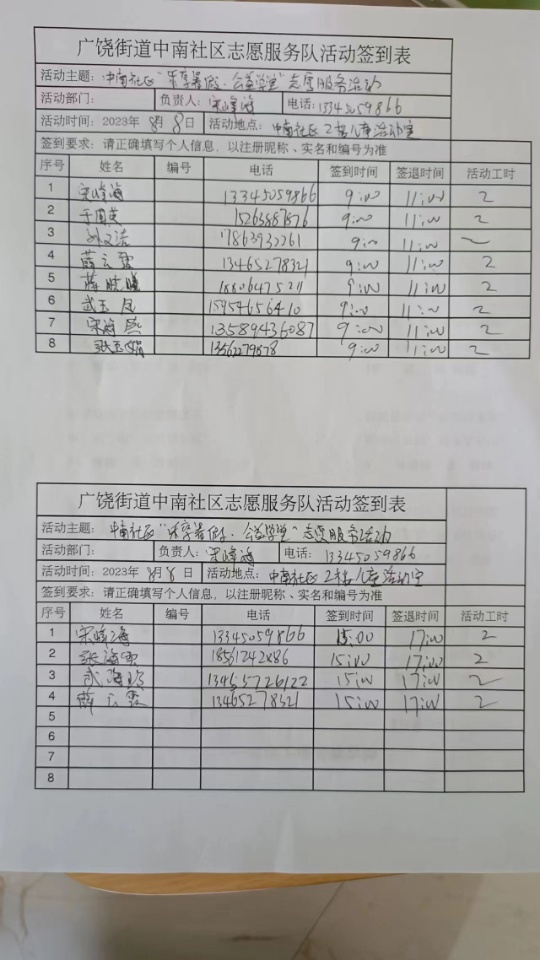 广饶街道中南社区志愿服务队活动签到表
活动主题：中南社区"乐享暑假、公益学堂"志愿服务活动
活动部门： 负责人： 电话：13345059866
活动时间：2023年 8月 8日 活动地点：中南社区2楼儿童活动室
签到要求：请正确填写个人信息，以注册昵称、实名和编号为准
序号 姓名 编号 电话 签到时间 签退时间 活动工时
1 13345059866 9:00 11:00 2
2 于国英 15263887876 9:00 11:00 2
3 刘文洁 17863932261 9:00 11:00 2
4 薛云霞 13465278321 9:00 11:00 2
5 9:00 11:00 2
6 武玉凤 15954656410 9:00 11:00 2
7 13589436087 9:00 11:00 2
8 张玉娟 13562279578 9:00 11:00 2
广饶街道中南社区志愿服务队活动签到表
活动主题：中南社区"乐享暑假、公益学堂"志愿服务活动
活动部门： 负责人： 电话：13345059866
活动时间：2023年 8月 8日 活动地点：中南社区2楼儿童活动室
签到要求：请正确填写个人信息，以注册昵称、实名和编号为准
序号 姓名 编号 电话 签到时间 签退时间 活动工时
1 13345059866 15:00 17:00 2
2 15:00 17:00 2
3 15:00 17:00 2
4 薛云霞 13465278321 15:00 17:00 2
5
6
7
8